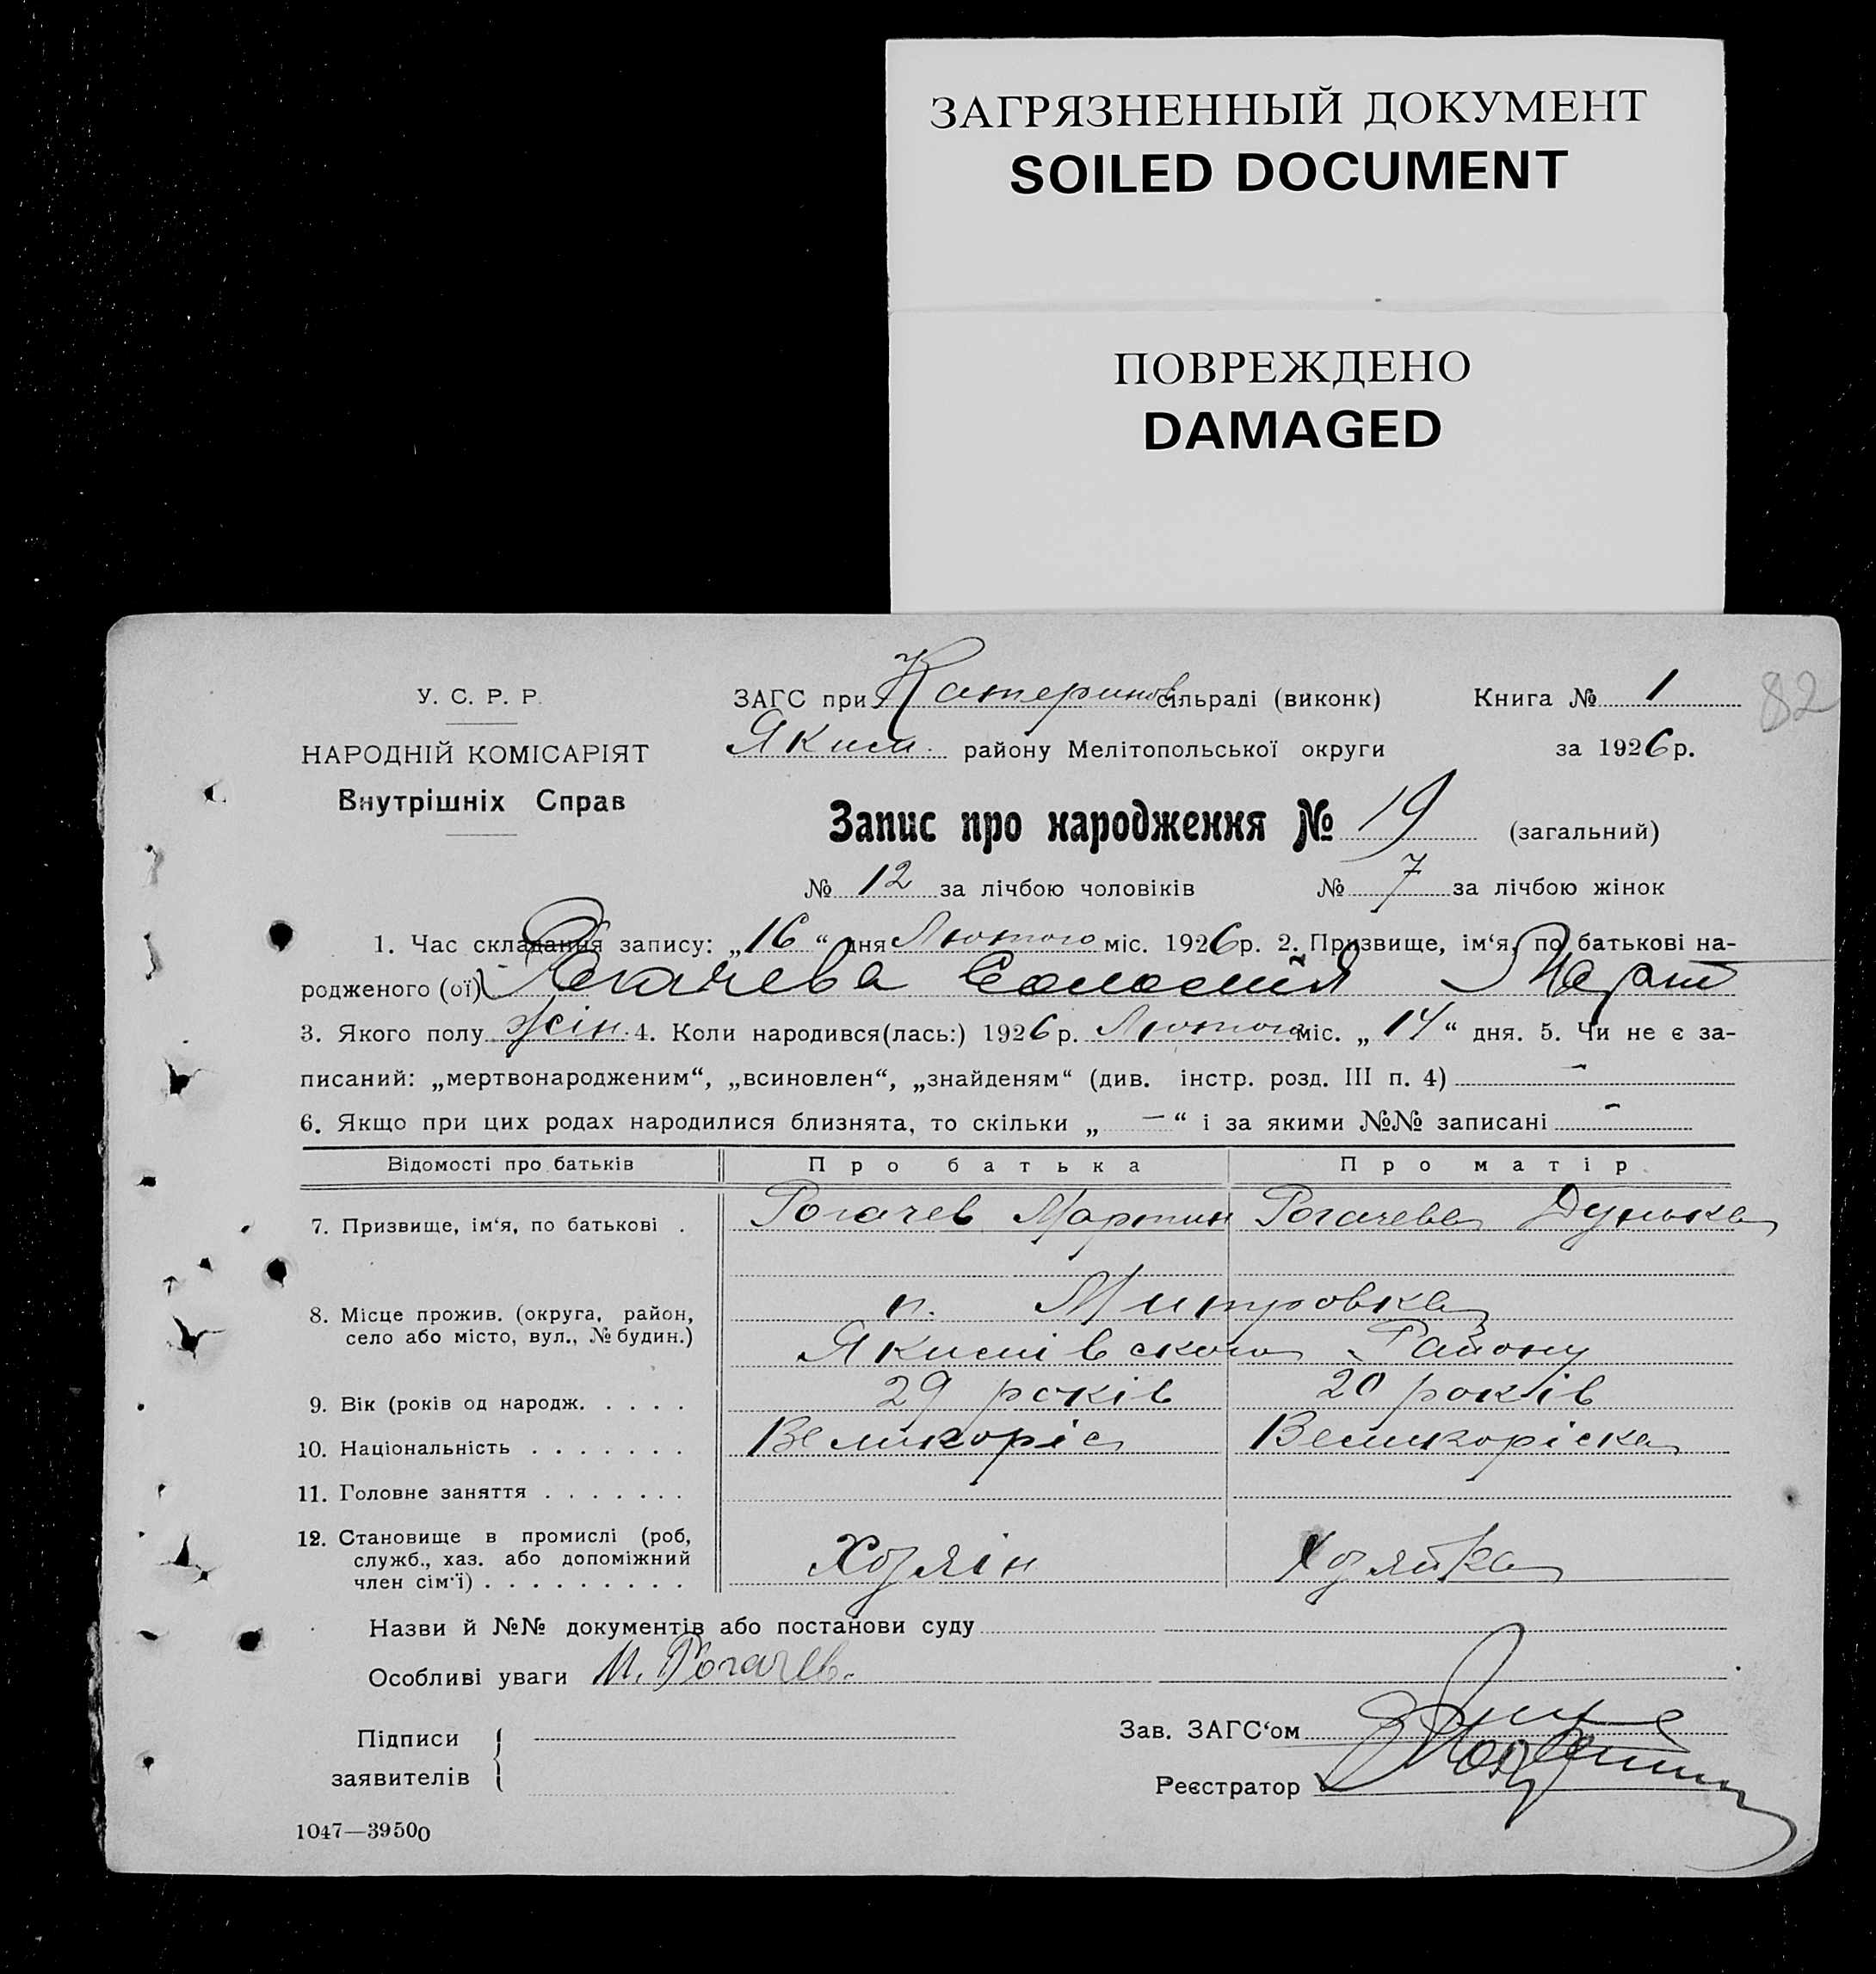 ЗАГРЯЗНЕННЫЙ ДОКУМЕНТ
SOILED DOCUMENT
ПОВРЕЖДЕНО
DAMAGED
82
У. С. Р. Р.
НАРОДНІЙ КОМІСАРІЯТ
Внутрішніх Справ
ЗАГС при Катеринов сільраді (виконк) Книга № 1
Яким. району Мелітопольської округи за 1926 р.
Запис про народження № 19 (загальний)
№ 12 за лічбою чоловіків № 7 за лічбою жінок
1. Час складання запису: „16“ дня Лютого міс. 1926 р. 2. Призвище, ім‘я, по батькові на-
родженого (ої) Рогачева Соломія Март
3. Якого полу жін. 4. Коли народився(лась:) 1926 р. Лютого міс. „14“ дня. 5. Чи не є за-
писаний: „мертвонародженим“, „всиновлен“, „знайденям“ (див. інстр. розд. III п. 4) -
6. Якщо при цих родах народилися близнята, то скільки „ — “ і за якими №№ записані -
Відомості про батьків Про батька Про матір
7. Призвище, ім‘я, по батькові . Рогачев Мартин Рогачева Дунька
8. Місце прожив. (округа, район, село або місто, вул., № будин.) п. Митровка
Якимівского Району
9. Вік (років од народж. . . . . 29 років 20 років
10. Національність . . . . . . . Великоріс Великоріска
11. Головне заняття . . . . . . .
12. Становище в промислі (роб,
служб., хаз. або допоміжний
член сім‘ї) . . . . . . . . . Хозяін Хозяйка
Назви й №№ документів або постанови суду
Особливі уваги М. Рогачев.
Підписи
заявителів
Зав. ЗАГС‘ом
Реєстратор
1047—39500